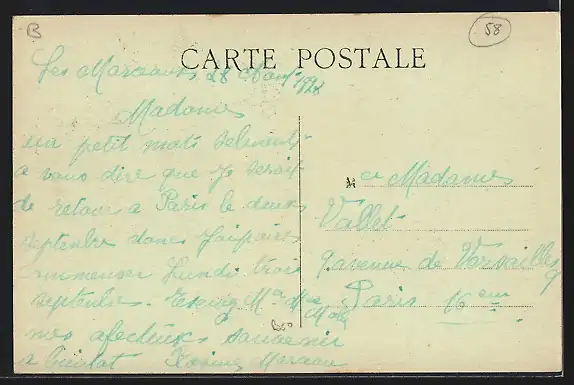 B
58
CARTE POSTALE
Les Marceaux 28 Août 1928
Madame
un petit mots selement
a vous dire que je serait
de retour a Paris le deux
septenbre donc
commenser Lundi trois
septenbre.
mes afecteux souvenir
a
Madame
Vallet
9 avenue de Versailles
Paris 16 em